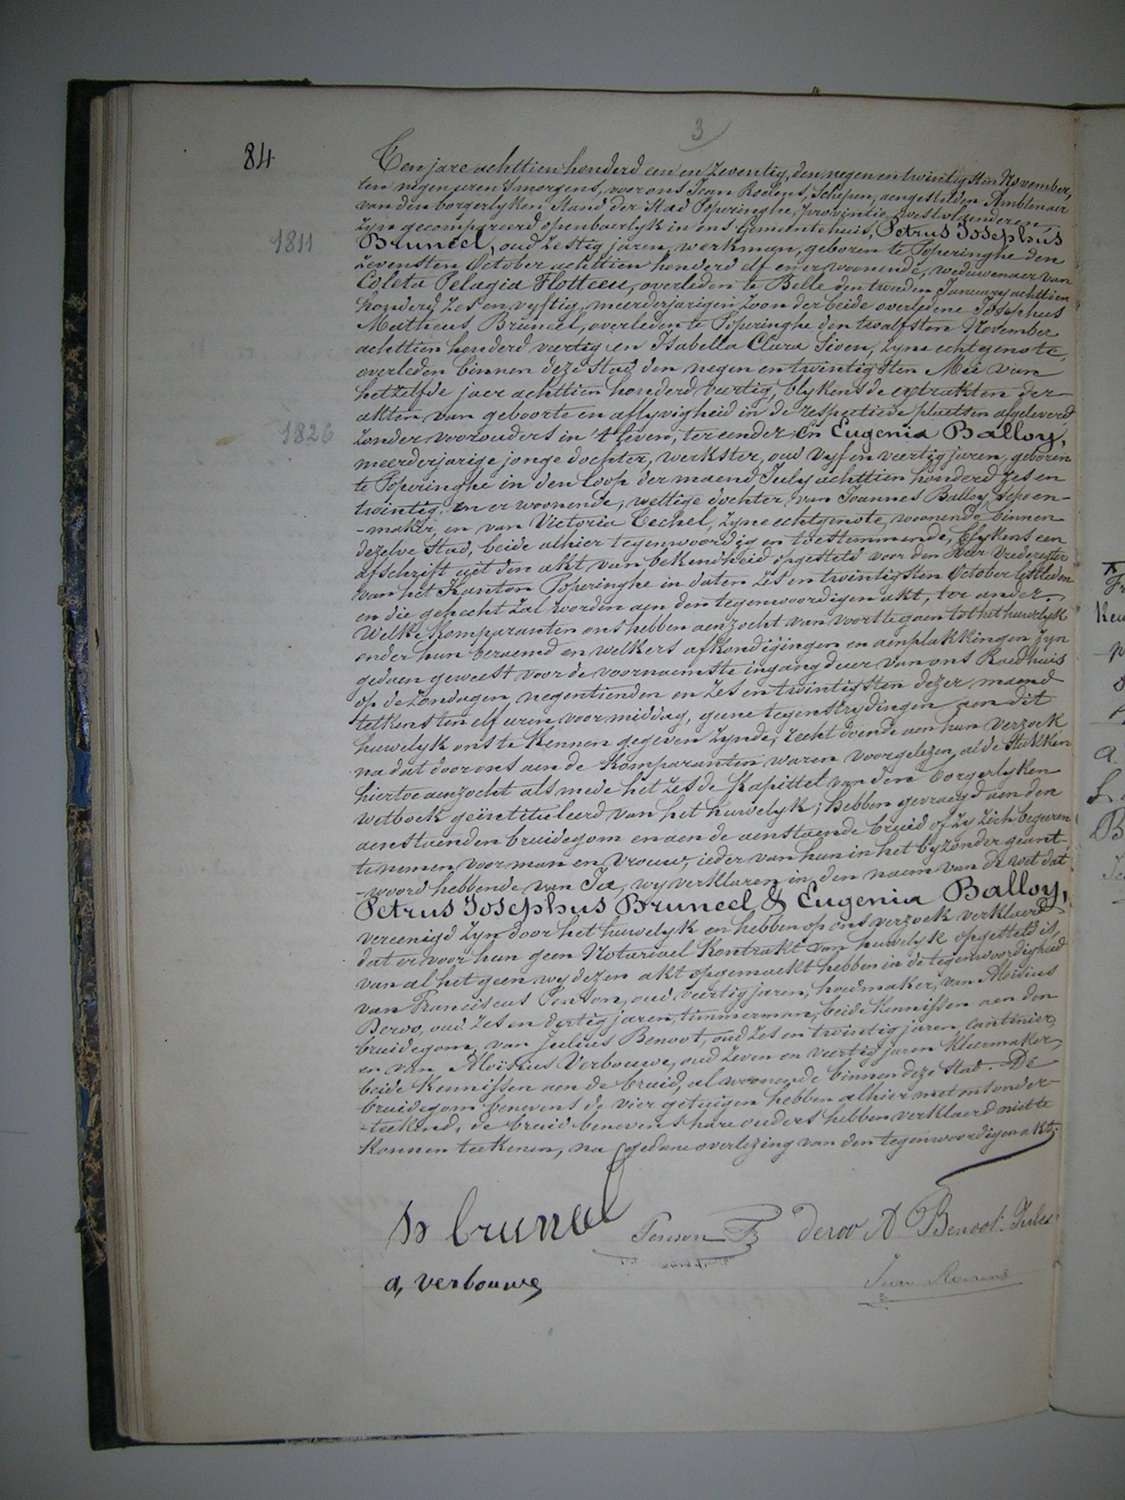 3
84
Ten jare achttien honderd een en zeventig, den negen en twintigsten November,
ten negen uren 's morgens, voor ons Jean Roelens, Schepen, aengestelden Ambtenaer
van den borgerlyken Stand der Stad Poperinghe, provintie westvlaenderen
zyn gecompareerd openbaerlyk in ons Gemeentehuis, Petrus Josephus
1811
Bruneel, oud zestig jaren, werkman, geboren te Poperinghe den
zevensten October achttien honderd elf en er woonende, weduwenaer van
Coleta Pelagia Flotteeu, overleden te Belle den tweeden January achttien
honderd zes en vyftig, meerderjarigen zoon der beide overledene Josephus
Matheus Bruneel, overleden te Poperinghe den twalfsten November
achttien honderd veertig en Isabella Clara Siven, zyne echtgenote,
overleden binnen deze Stad den negen en twintigsten Mei van
hetzelfde jaer achttien honderd veertig, blykens de extrakten der
akten van geboorte en aflyvigheid in de respectieve plaetsen afgeleverd
1826
zonder voorouders in 't leven, ter eender en Eugenia Balloy,
meerderjarige jonge dochter, werkster, oud vyf en veertig jaren, geboren
te Poperinghe in den loop der maend July achttien honderd zes en
twintig en er woonende, wettige dochter van Joannes Balloy, schoen-
-maker, en van Victoria Techel, zyne echtgenote, woonende binnen
dezelve Stad, beide alhier tegenwoordig en toestemmende, blykens een
afschrift uit den akt van bekendheid opgesteld voor den Heer Vrederegter
van het Kanton Poperinghe in daten zes en twintigsten October lestleden
en die gehecht zal worden aen den tegenwoordigen akt, ter ander.
Welke komparanten ons hebben aenzocht van voort te gaen tot het huwelyk
onder hun beraemd en welkers afkondigingen en aenplakkingen zyn
gedaen geweest voor de voornaemste ingangdeur van ons Raedhuis
op de zondagen, negentienden en zes en twintigsten dezer maend
telkens ten elf uren voormiddag, geene tegenstrydingen aen dit
huwelyk ons te kennen gegeven zynde, recht doende aen hun verzoek
na dat door ons aen de komparanten waren voorgelezen al de stukken
hiertoe aenzocht als mede het zesde kapittel van den borgerlyken
wetboek geïntituleerd van het huwelyk; hebben gevraegd aen den
aenstaenden bruidegom en aen de aenstaende bruid of zy zich begeeren
te nemen voor man en vrouw, ieder van hun in het byzonder geant-
-woord hebbende van Ja, wy verklaren in den naem van de wet dat
Petrus Josephus Bruneel & Eugenia Balloy,
vereenigd zyn door het huwelyk en hebben op ons verzoek verklaerd
dat er voor hun geen Notarieel Kontrakt van huwelyk opgesteld is,
van al het geen wy dezen akt opgemaekt hebben in de tegenwoordigheid
van Franciscus Penson, oud veertig jaren, hoedmaker, van Aloisius
Deroo, oud zes en dertig jaren, timmerman, beide kennissen aen den
bruidegom, van Julius Benoot, oud zes en twintig jaren, cantinier,
en van Aloïsius Verbouwe, oud zeven en veertig jaren kleermaker
beide kennissen aen de bruid, al woonende binnen deze Stad. De
bruidegom benevens de vier getuigen hebben alhier met ons onder-
-teekend, de bruid benevens hare ouders hebben verklaerd niet te
konnen teekenen, na gedane overlezing van den tegenwoordigen akt.
bruneel
Penson F
deroo A
Benoot Jules
a, verbouwe